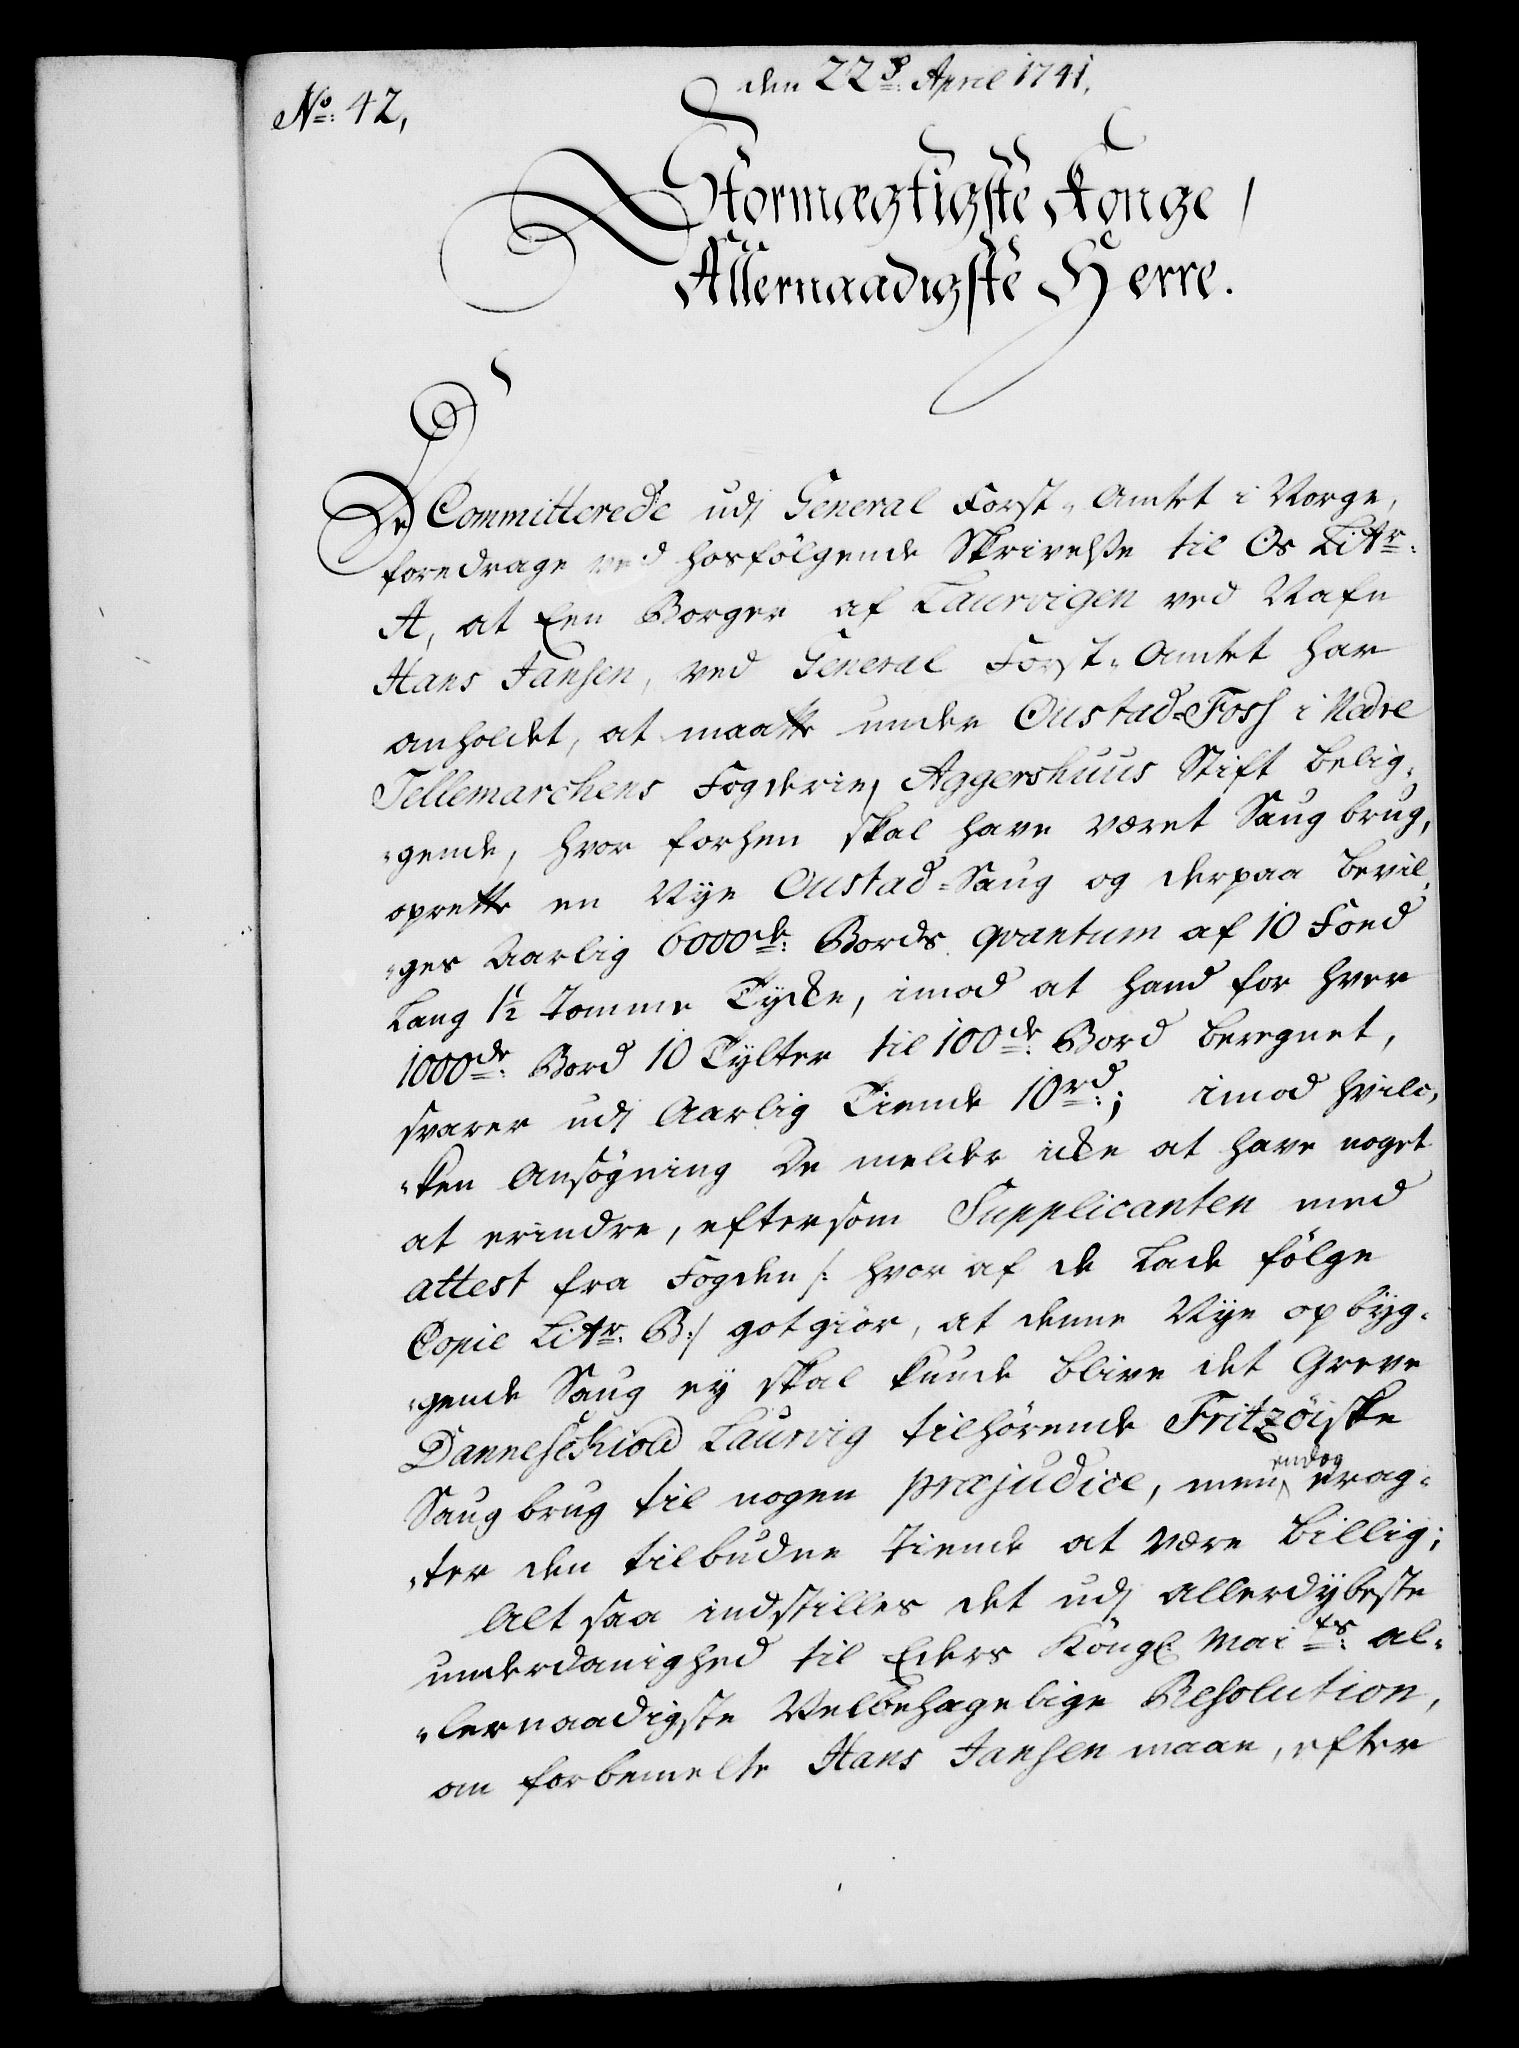 No: 42,
den 22de April 1741.
Stormægtigste Konge /
Allernaadigste Herre.
De Committerede udj General Forst-Amtet i Norge,
foredrage ved hosfölgende Skrivelße til Os Littr:
A, at Een Borger af Laurvigen ved Nafn
Hans Jansen, ved General Forst-Amtet har
anholdet, at maatte under Oustad-Foss i Nedre
Tellemarchens Fogderie, Aggershuus Stift belig-
-gende, hvor forhen skal have været Saug brug,
oprette en Nye Oustad-Saug og derpaa bevil-
-ges Aarlig 6000de: Bords qvantum af 10 Foed
Lang 1½ Tomme Tycke, imod at hand for hver
1000de: Bord 10 Tylter til 100de: Bord beregnet,
svarer udj Aarlig Tiende 10rd:; imod hvilc-
-ken Ansögning De melder icke at have noget
at erindre, eftersom Supplicanten med
attest fra Fogden /: hvor af de Lade fölge
Copie Littr: B:/ gotgiör, at denne Nye opbyg-
-gende Saug ey skal kunde blive det Greve
Danneschiold Laurvig tilhörende Fritzöiske
Saug brug til nogen præjudice, men endog erag-
-ter den tilbudne Tiende at være billig;
Alt saa indstilles det udj allerdybeste
underdanighed til Eders Köngl: Maits: al-
-lernaadigste Velbehagelige Resolution,
om forbemelte Hans Jansen maae, efter